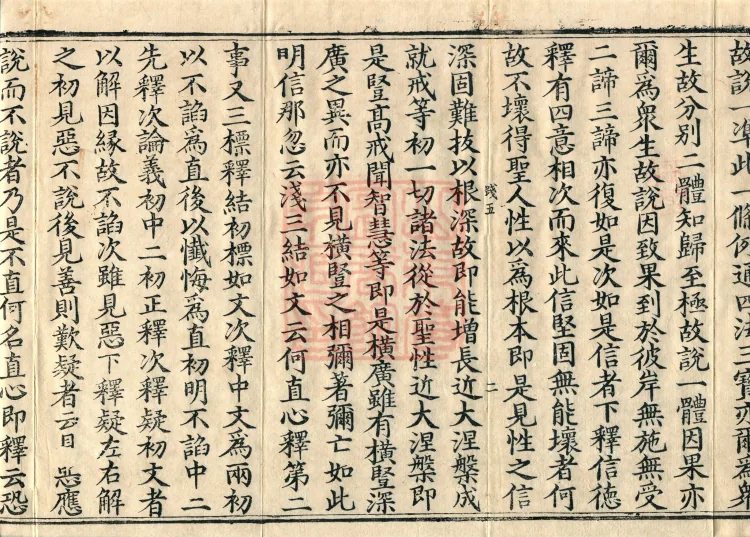 故說一準此一條例通四法三寶亦爾為眾
生故分別二體知歸至極故說一體因果亦
爾為眾生故說因致果到於彼岸無施無受
二諦三諦亦復如是次如是信者下釋信德
釋有四意相次而來此信堅固無能壞者何
故不壞得聖人性以為根本即是見性之信
踐五 二
深固難拔以根深故即能增長近大涅槃成
就戒等初一切諸法從於聖性近大涅槃即
是豎高戒聞智慧等即是橫廣雖有橫豎深
廣之異而亦不見橫豎之相彌著彌亡如此
明信那忽云淺三結如文云何直心釋第二
事又三標釋結初標如文次釋中文為兩初
以不諂為直後以懺悔為直初明不諂中二
先釋次論義初中二初正釋次釋疑初文者
以解因緣故不諂次雖見惡下釋疑左右解
之初見惡不說後見善則歎疑者云目 惡應
說而不說者乃是不直何名直心即釋云恐